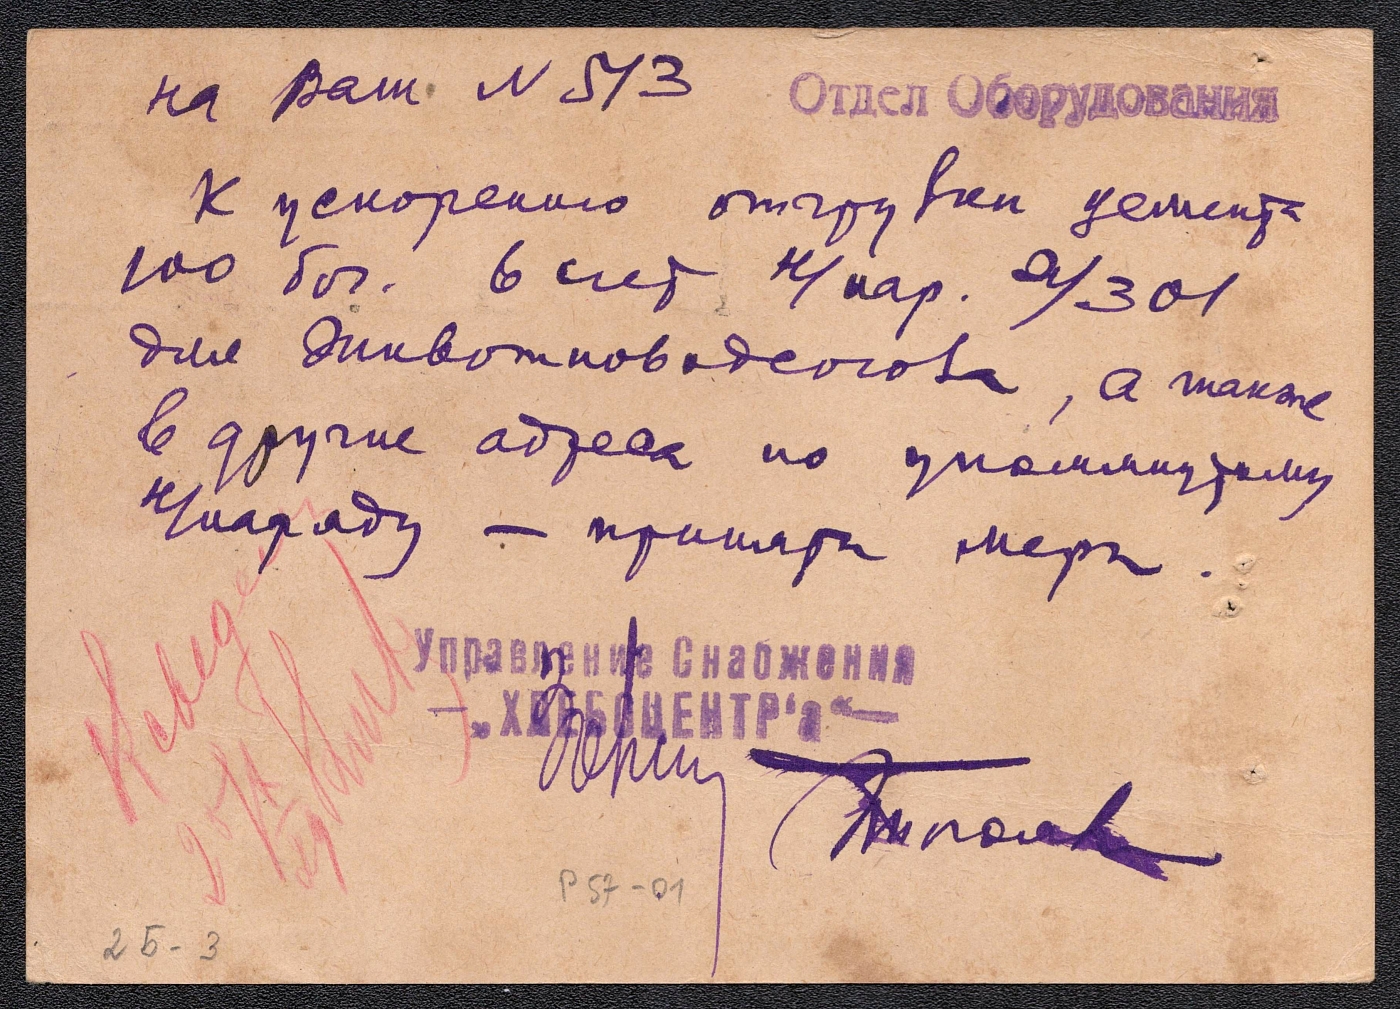 на Ваш N 573
Отдел Оборудования
К ускорению отгрузки цемента
100 боч. в счет н/нар. 2/301
для Животноводсоюза, а также
в другие адреса по упомянутому
н/наряду — приняты меры.
Управление Снабжения
— „ХЛЕБОЦЕНТР'а“ —
К сведен
P 57-01
2 Б - 3